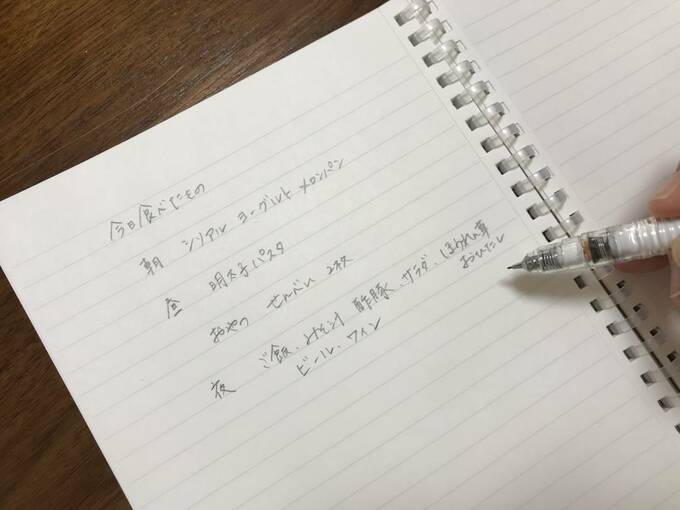 今日食べたもの
朝 シリアル ヨーグルト メロンパン
昼 明太子パスタ
おやつ せんべい 2枚
夜 ご飯、みそ汁 酢豚、サラダ、ほうれん草
おひたし
ビール、ワイン